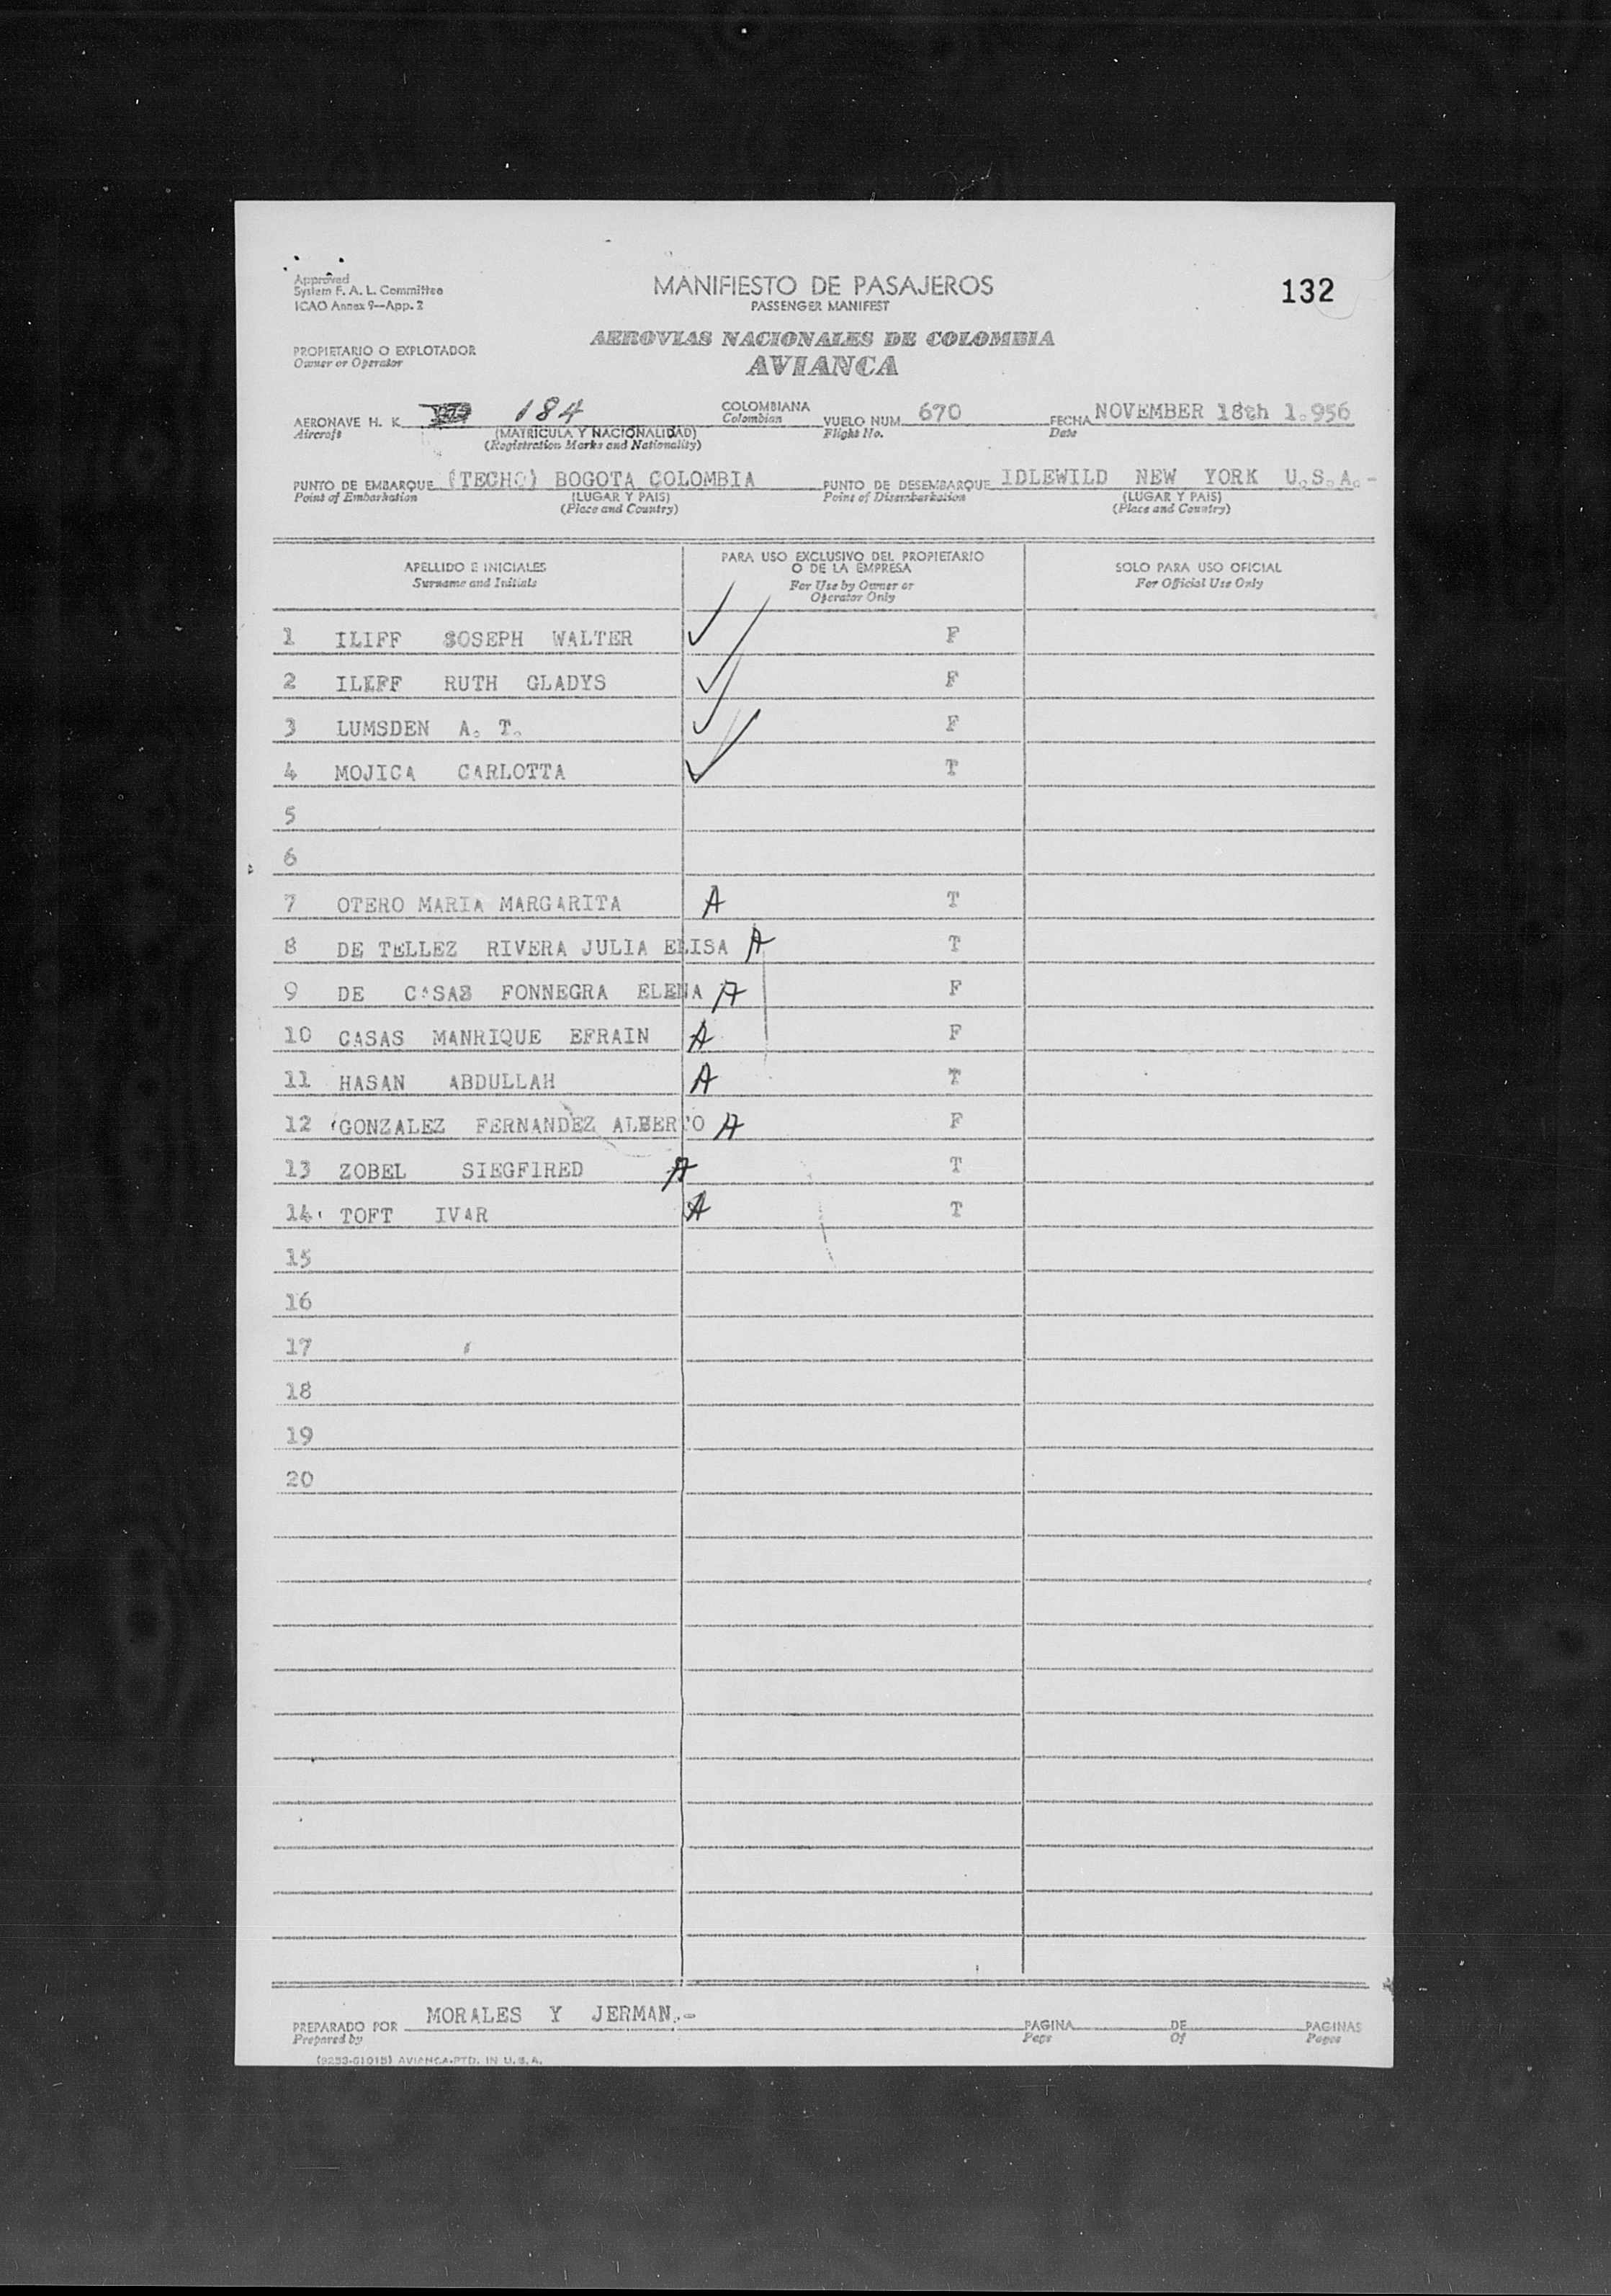 Approved
System F. A. L. Committee
ICAO Annex 9—App. 2
MANIFIESTO DE PASAJEROS
PASSENGER MANIFEST
132
AEROVIAS NACIONALES DE COLOMBIA
AVIANCA
PROPIETARIO O EXPLOTADOR
Owner or Operator
AERONAVE H. K. 184 COLOMBIANA VUELO NUM. 670 FECHA NOVEMBER 18th 1.956
Aircraft (MATRICULA Y NACIONALIDAD) Colombian Flight No. Date
(Registration Marks and Nationality)
PUNTO DE EMBARQUE (TECHO) BOGOTA COLOMBIA PUNTO DE DESEMBARQUE IDLEWILD NEW YORK U.S.A.-
Point of Embarkation (LUGAR Y PAIS) Point of Disembarkation (LUGAR Y PAIS)
(Place and Country) (Place and Country)
APELLIDO E INICIALES
Surname and Initials
PARA USO EXCLUSIVO DEL PROPIETARIO
O DE LA EMPRESA
For Use by Owner or
Operator Only
SOLO PARA USO OFICIAL
For Official Use Only
1 ILIFF SOSEPH WALTER F
2 ILEFF RUTH GLADYS F
3 LUMSDEN A. T. F
4 MOJICA CARLOTTA T
5
6
7 OTERO MARIA MARGARITA A T
8 DE TELLEZ RIVERA JULIA ELISA A T
9 DE CASAS FONNEGRA ELENA A F
10 CASAS MANRIQUE EFRAIN A F
11 HASAN ABDULLAH A T
12 GONZALEZ FERNANDEZ ALBERTO A F
13 ZOBEL SIEGFIRED A T
14 TOFT IVAR A T
15
16
17
18
19
20
PREPARADO POR MORALES Y JERMAN.- PAGINA DE PAGINAS
Prepared by Page Of Pages
(9253-61015) AVIANCA-PTD. IN U.S.A.